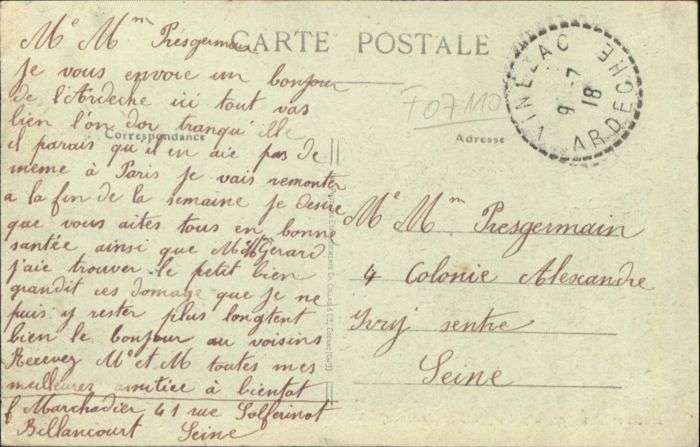 CARTE POSTALE
Correspondance
Adresse
VINEZAC
9 -7
18
ARDECHE
F07110
Me Mm Presgermain
Je vous envoie un bonjour
de l'Ardeche ici tout vas
bien l'on dor tranquille
il parais qu'il en aie pas de
meme à Paris je vais remonter
a la fin de la semaine je desire
que vous aites tous en bonne
santée ainsi que Gerard
j'aie trouver le petit bien
grandit ces domage que je ne
puis y rester plus longtent
bien le bonjour au voisins
Recevez Me et M toutes mes
meilleures amitiée à bientot
Marchadier 41 rue Solferinot
Billancourt Seine
Me Mm Presgermain
4 Colonie Alexandre
Ivry sentre
Seine